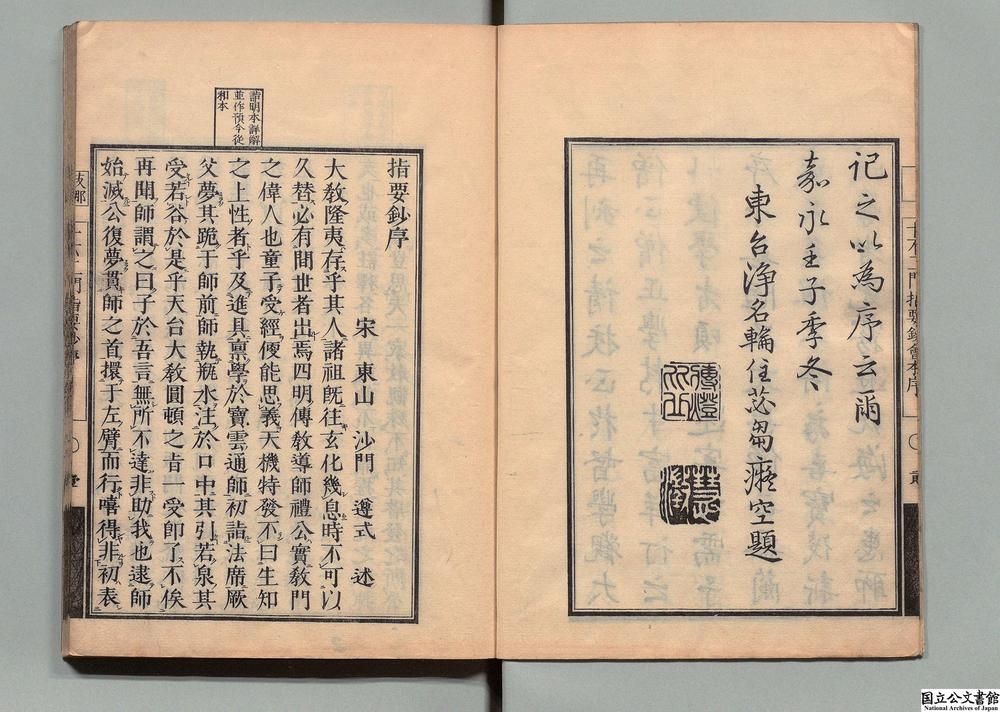 記之以為序云爾
嘉永壬子季冬
東台浄名輪住苾芻癡空題
慧澄
指要鈔序
宋 東山 沙門 遵式 述
大教隆夷存乎其人諸祖既往玄化幾息時不可以
久替必有間世者出焉四明傳教導師禮公實教門
之偉人也童子受經便能思義天機特發不曰生知
之上性者乎及進具稟學於寶雲通師初詣法席厥
父夢其跪于師前師執瓶水注於口中其引若泉其
受若谷於是乎天台大教圓頓之旨一受即了不俟
再聞師謂之曰子於吾言無所不達非助我也逮師
始滅公復夢貫師之首擐于左臂而行嘻得非初表
詣明本詳解
並作預今從
和本
十不二門指要鈔會本序
十不二門指要鈔序
国立公文書館
National Archives of Japan